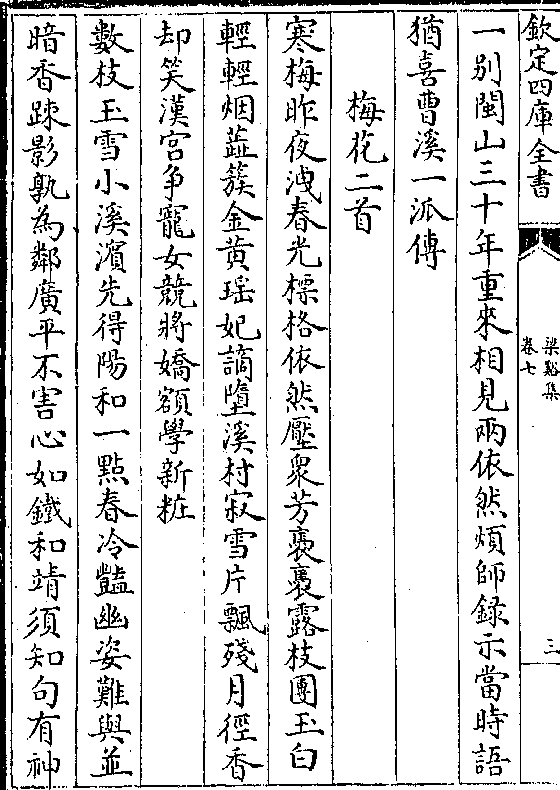 欽定四庫全書
梁谿集
卷七
三
一別閩山三十年重來相見兩依然煩師録示當時語
猶喜曹溪一派傳
梅花二首
寒梅昨夜洩春光標格依然壓衆芳裛裛露枝團玉白
輕輕烟蘂簇金黄瑶妃謫墮溪村寂雪片飄殘月徑香
却笑漢宫争寵女競將嬌額學新粧
數枝玉雪小溪濱先得陽和一點春冷豔幽姿難與並
暗香踈影孰為鄰廣平不害心如鐵和靖須知句有神